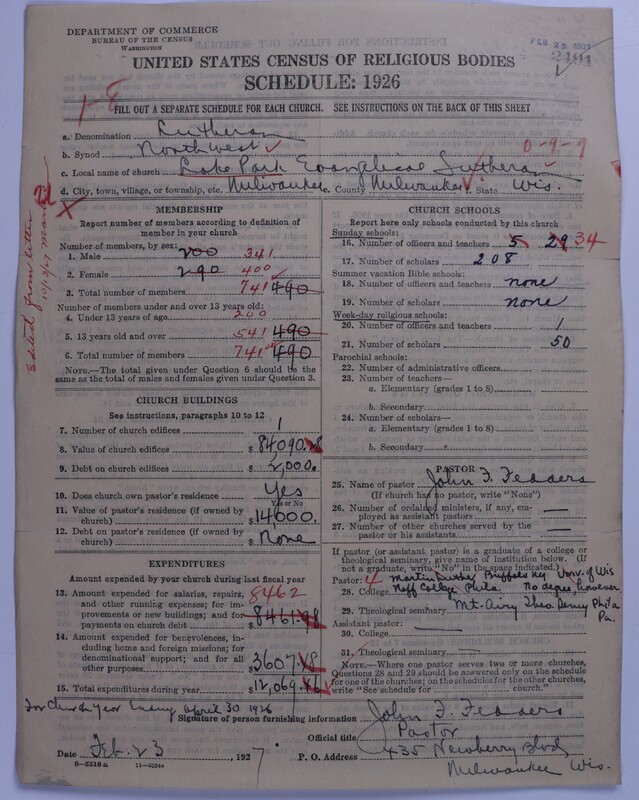 DEPARTMENT OF COMMERCE
BUREAU OF THE CENSUS
WASHINGTON
FEB 25 1927
UNITED STATES CENSUS OF RELIGIOUS BODIES
SCHEDULE: 1926
1-8
FILL OUT A SEPARATE SCHEDULE FOR EACH CHURCH. SEE INSTRUCTIONS ON THE BACK OF THIS SHEET
a. Denomination Lutheran
b. Synod Northwest 0-9-9
c. Local name of church Lake Park Evangelical Lutheran
d. City, town, village, or township, etc. Milwaukee County Milwaukee State Wis.
Edited from letter
MEMBERSHIP
Report number of members according to definition of
member in your church
Number of members, by sex:
1. Male 200 341
2. Female 290 400
3. Total number of members 741 490
Number of members under and over 13 years old:
4. Under 13 years of age 200
5. 13 years old and over 541 490
6. Total number of members 741 490
NOTE.—The total given under Question 6 should be
same as the total of males and females given under Question 3.
CHURCH BUILDINGS
See instructions, paragraphs 10 to 12
7. Number of church edifices 1
8. Value of church edifices $ 84090.
9. Debt on church edifices $ 2,000.
10. Does church own pastor's residence Yes
Yes or No
11. Value of pastor's residence (if owned by
church) $ 14000.
12. Debt on pastor's residence (if owned by
church) $ None
EXPENDITURES
Amount expended by your church during last fiscal year
13. Amount expended for salaries, repairs, 8462
and other running expenses; for im-
provements or new buildings; and for
payments on church debt $ 8461.98
14. Amount expended for benevolences,
including home and foreign missions; for
denominational support; and for all
other purposes $ 3607.
15. Total expenditures during year $ 12,069.
CHURCH SCHOOLS
Report here only schools conducted by this church
Sunday schools:
16. Number of officers and teachers 5 29 34
17. Number of scholars 208
Summer vacation Bible schools:
18. Number of officers and teachers none
19. Number of scholars none
Week-day religious schools:
20. Number of officers and teachers 1
21. Number of scholars 50
Parochial schools:
22. Number of administrative officers
23. Number of teachers—
a. Elementary (grades 1 to 8)
b. Secondary
24. Number of scholars—
a. Elementary (grades 1 to 8)
b. Secondary
PASTOR
25. Name of pastor John F. Fedders
(If church has no pastor, write "None")
26. Number of ordained ministers, if any, em-
ployed as assistant pastors —
27. Number of other churches served by the
pastor or his assistants —
If pastor (or assistant pastor) is a graduate of a college or
theological seminary, give name of institution below. (If
not a graduate, write "No" in the space indicated.)
Pastor: 4 Martin Luther Buffalo Ny Univ. of Wis
28. College Neff College Phila. No degree however
29. Theological seminary Mt. Airy Theo. Semy Phila
Pa.
Assistant pastor:
30. College
31. Theological seminary
NOTE.—Where one pastor serves two or more churches,
Questions 28 and 29 should be answered only on the schedule
for one of the churches; on the schedules for the other churches,
write "See schedule for church."
For Church year Ending April 30 1926
Signature of person furnishing information John F. Fedders
Official title Pastor
Date Feb. 23, 1927 P. O. Address 435 Newberry Blvd
Milwaukee Wis.
8—5518 a 11—9264